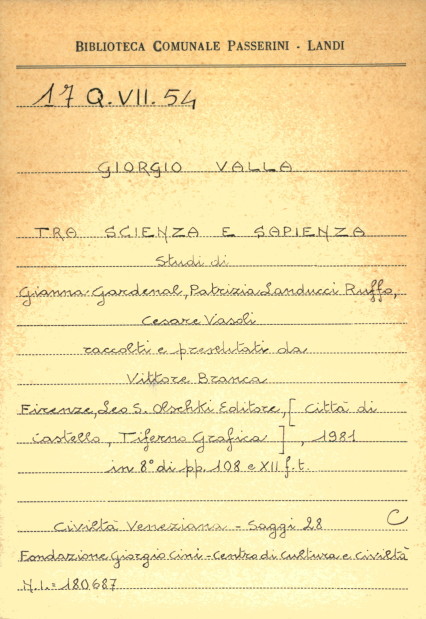 BIBLIOTECA COMUNALE PASSERINI - LANDI
17 Q.VII.54
GIORGIO VALLA
TRA SCIENZA E SAPIENZA
Studi di
Gianna Gardenal, Patrizia Landucci Ruffo,
Cesare Vasoli
raccolti e presentati da
Vittore Branca
Firenze, Leo S. Olschki Editore, [ Città di
Castello, Tiferno Grafica ] , 1981
in 8° di pp. 108 e XII f.t.
Civiltà Veneziana - Saggi 28
C
Fondazione Giorgio Cini - Centro di Cultura e Civiltà
N.I. = 180687